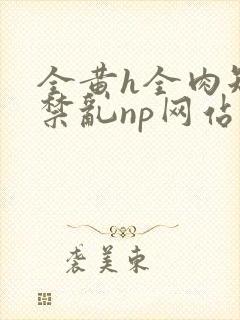 全黄h全肉短
禁乱np网佔
袭美东